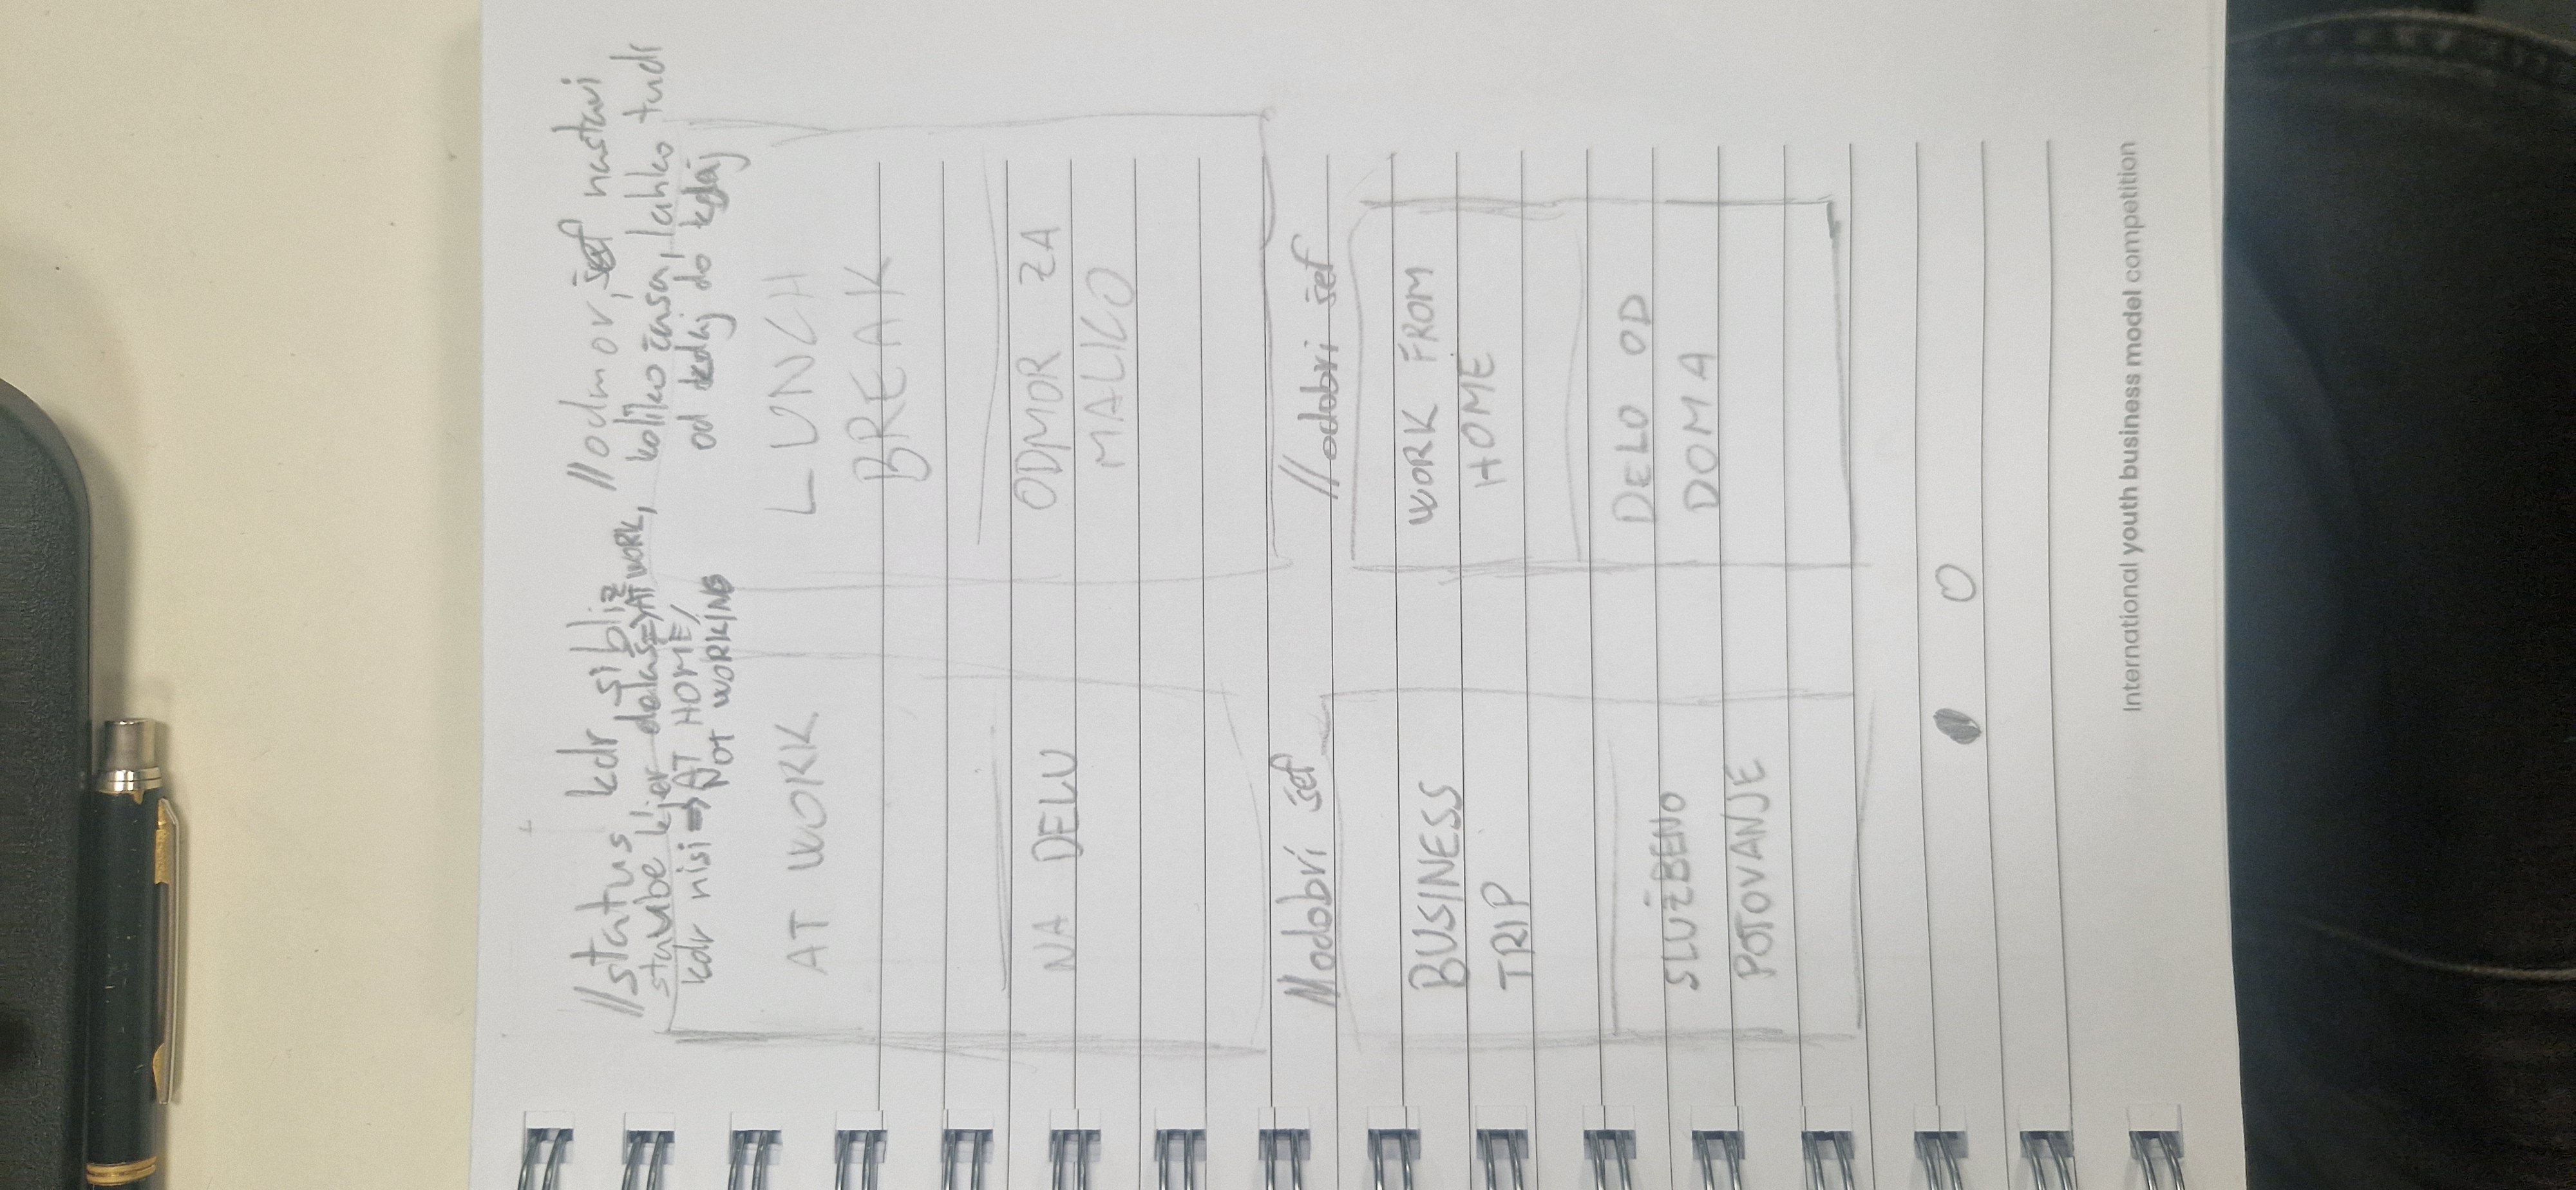 //status, kdr si bliz
stavbe kjer delaš => AT WORK,
kdr nisi => AT HOME/
NOT WORKING
//odmor, šef nastavi
koliko časa, lahko tudi
od kdaj do kdaj
AT WORK
NA DELU
LUNCH
BREAK
ODMOR ZA
MALICO
//odobri šef
BUSINESS
TRIP
SLUŽBENO
POTOVANJE
//odobri šef
WORK FROM
HOME
DELO OD
DOMA
International youth business model competition